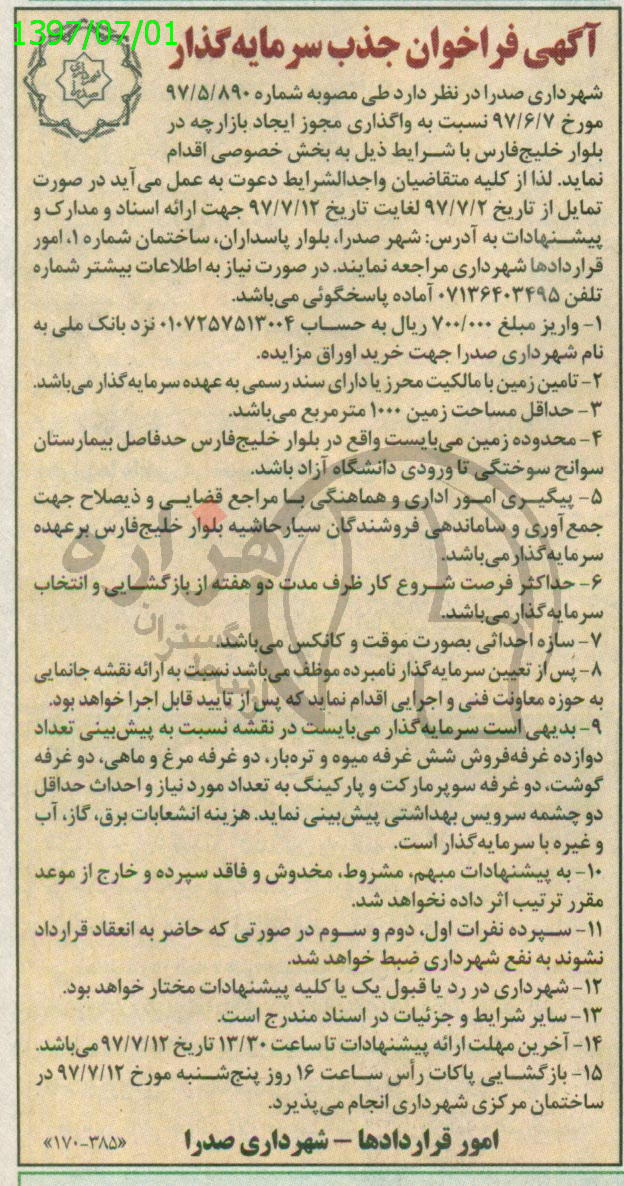 1397/07/01
آگهی فراخوان جذب سرمایه‌گذار
شهرداری صدرا
شهرداری صدرا در نظر دارد طی مصوبه شماره ۹۷/۵/۸۹۰
مورخ ۹۷/۶/۷ نسبت به واگذاری مجوز ایجاد بازارچه در
بلوار خلیج‌فارس با شرایط ذیل به بخش خصوصی اقدام
نماید. لذا از کلیه متقاضیان واجدالشرایط دعوت به عمل می‌آید در صورت
تمایل از تاریخ ۹۷/۷/۲ لغایت تاریخ ۹۷/۷/۱۲ جهت ارائه اسناد و مدارک و
پیشنهادات به آدرس: شهر صدرا، بلوار پاسداران، ساختمان شماره ۱، امور
قراردادها شهرداری مراجعه نمایند. در صورت نیاز به اطلاعات بیشتر شماره
تلفن ۰۷۱۳۶۴۰۳۴۹۵ آماده پاسخگوئی می‌باشد.
۱- واریز مبلغ ۷۰۰/۰۰۰ ریال به حساب ۰۱۰۷۲۵۷۵۱۳۰۰۴ نزد بانک ملی به
نام شهرداری صدرا جهت خرید اوراق مزایده.
۲- تامین زمین با مالکیت محرز یا دارای سند رسمی به عهده سرمایه‌گذار می‌باشد.
۳- حداقل مساحت زمین ۱۰۰۰ مترمربع می‌باشد.
۴- محدوده زمین می‌بایست واقع در بلوار خلیج‌فارس حدفاصل بیمارستان
سوانح سوختگی تا ورودی دانشگاه آزاد باشد.
۵- پیگیری امور اداری و هماهنگی با مراجع قضایی و ذیصلاح جهت
جمع‌آوری و ساماندهی فروشندگان سیار حاشیه بلوار خلیج‌فارس برعهده
سرمایه‌گذار می‌باشد.
۶- حداکثر فرصت شروع کار ظرف مدت دو هفته از بازگشایی و انتخاب
سرمایه‌گذار می‌باشد.
۷- سازه احداثی بصورت موقت و کانکس می‌باشد.
۸- پس از تعیین سرمایه‌گذار نامبرده موظف می‌باشد نسبت به ارائه نقشه جانمایی
به حوزه معاونت فنی و اجرایی اقدام نماید که پس از تایید قابل اجرا خواهد بود.
۹- بدیهی است سرمایه‌گذار می‌بایست در نقشه نسبت به پیش‌بینی تعداد
دوازده غرفه‌فروش شش غرفه میوه و تره‌بار، دو غرفه مرغ و ماهی، دو غرفه
گوشت، دو غرفه سوپرمارکت و پارکینگ به تعداد مورد نیاز و احداث حداقل
دو چشمه سرویس بهداشتی پیش‌بینی نماید. هزینه انشعابات برق، گاز، آب
و غیره با سرمایه‌گذار است.
۱۰- به پیشنهادات مبهم، مشروط، مخدوش و فاقد سپرده و خارج از موعد
مقرر ترتیب اثر داده نخواهد شد.
۱۱- سپرده نفرات اول، دوم و سوم در صورتی که حاضر به انعقاد قرارداد
نشوند به نفع شهرداری ضبط خواهد شد.
۱۲- شهرداری در رد یا قبول یک یا کلیه پیشنهادات مختار خواهد بود.
۱۳- سایر شرایط و جزئیات در اسناد مندرج است.
۱۴- آخرین مهلت ارائه پیشنهادات تا ساعت ۱۳/۳۰ تاریخ ۹۷/۷/۱۲ می‌باشد.
۱۵- بازگشایی پاکات رأس ساعت ۱۶ روز پنج‌شنبه مورخ ۹۷/۷/۱۲ در
ساختمان مرکزی شهرداری انجام می‌پذیرد.
امور قراردادها – شهرداری صدرا
«۱۷۰-۳۸۵»
هزاره